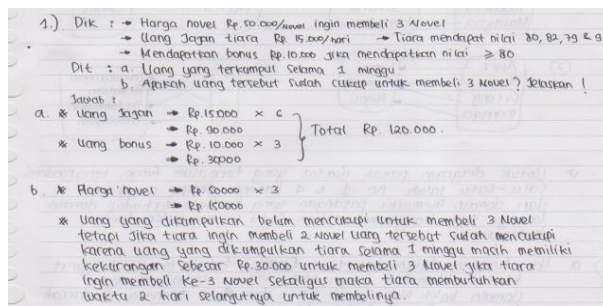 1.) Dik : → Harga novel Rp. 50.000/novel ingin membeli 3 Novel
→ Uang Jajan tiara Rp 15.000/hari → Tiara mendapat nilai 80, 82, 79 & 9
→ Mendapatkan bonus Rp. 10.000 jika mendapatkan nilai ≥ 80
Dit : a. Uang yang terkumpul selama 1 minggu
b. Apakah uang tersebut sudah cukup untuk membeli 3 Novel? Jelaskan!
Jawab :
a. * Uang Jajan → Rp. 15.000 × 6
→ Rp. 90.000
} Total Rp. 120.000.
* Uang bonus → Rp. 10.000 × 3
→ Rp. 30.000
b. * Harga novel → Rp 50000 × 3
→ Rp 150000
* Uang yang dikumpulkan belum mencukupi untuk membeli 3 Novel
tetapi Jika tiara ingin membeli 2 novel uang tersebut sudah mencukupi
karena uang yang dikumpulkan tiara selama 1 minggu masih memiliki
kekurangan sebesar Rp. 30.000 untuk membeli 3 Novel jika tiara
ingin membeli ke-3 novel sekaligus maka tiara membutuhkan
waktu 2 hari selanjutnya untuk membelinya.